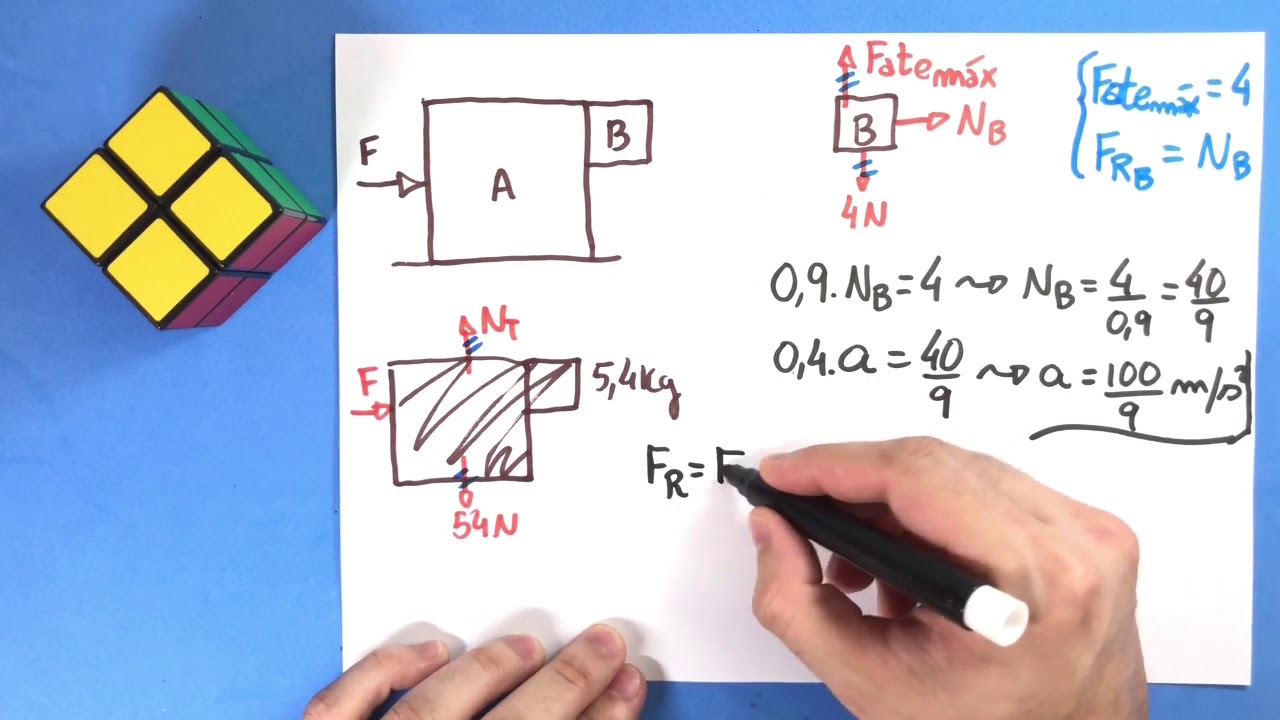 F
A
B
Fatemáx
B
NB
4N
Fatemáx = 4
FRB = NB
0,9.NB = 4 ⤳ NB = 4/0,9 = 40/9
0,4.a = 40/9 ⤳ a = 100/9 m/s²
NT
F
5,4kg
54N
FR = F